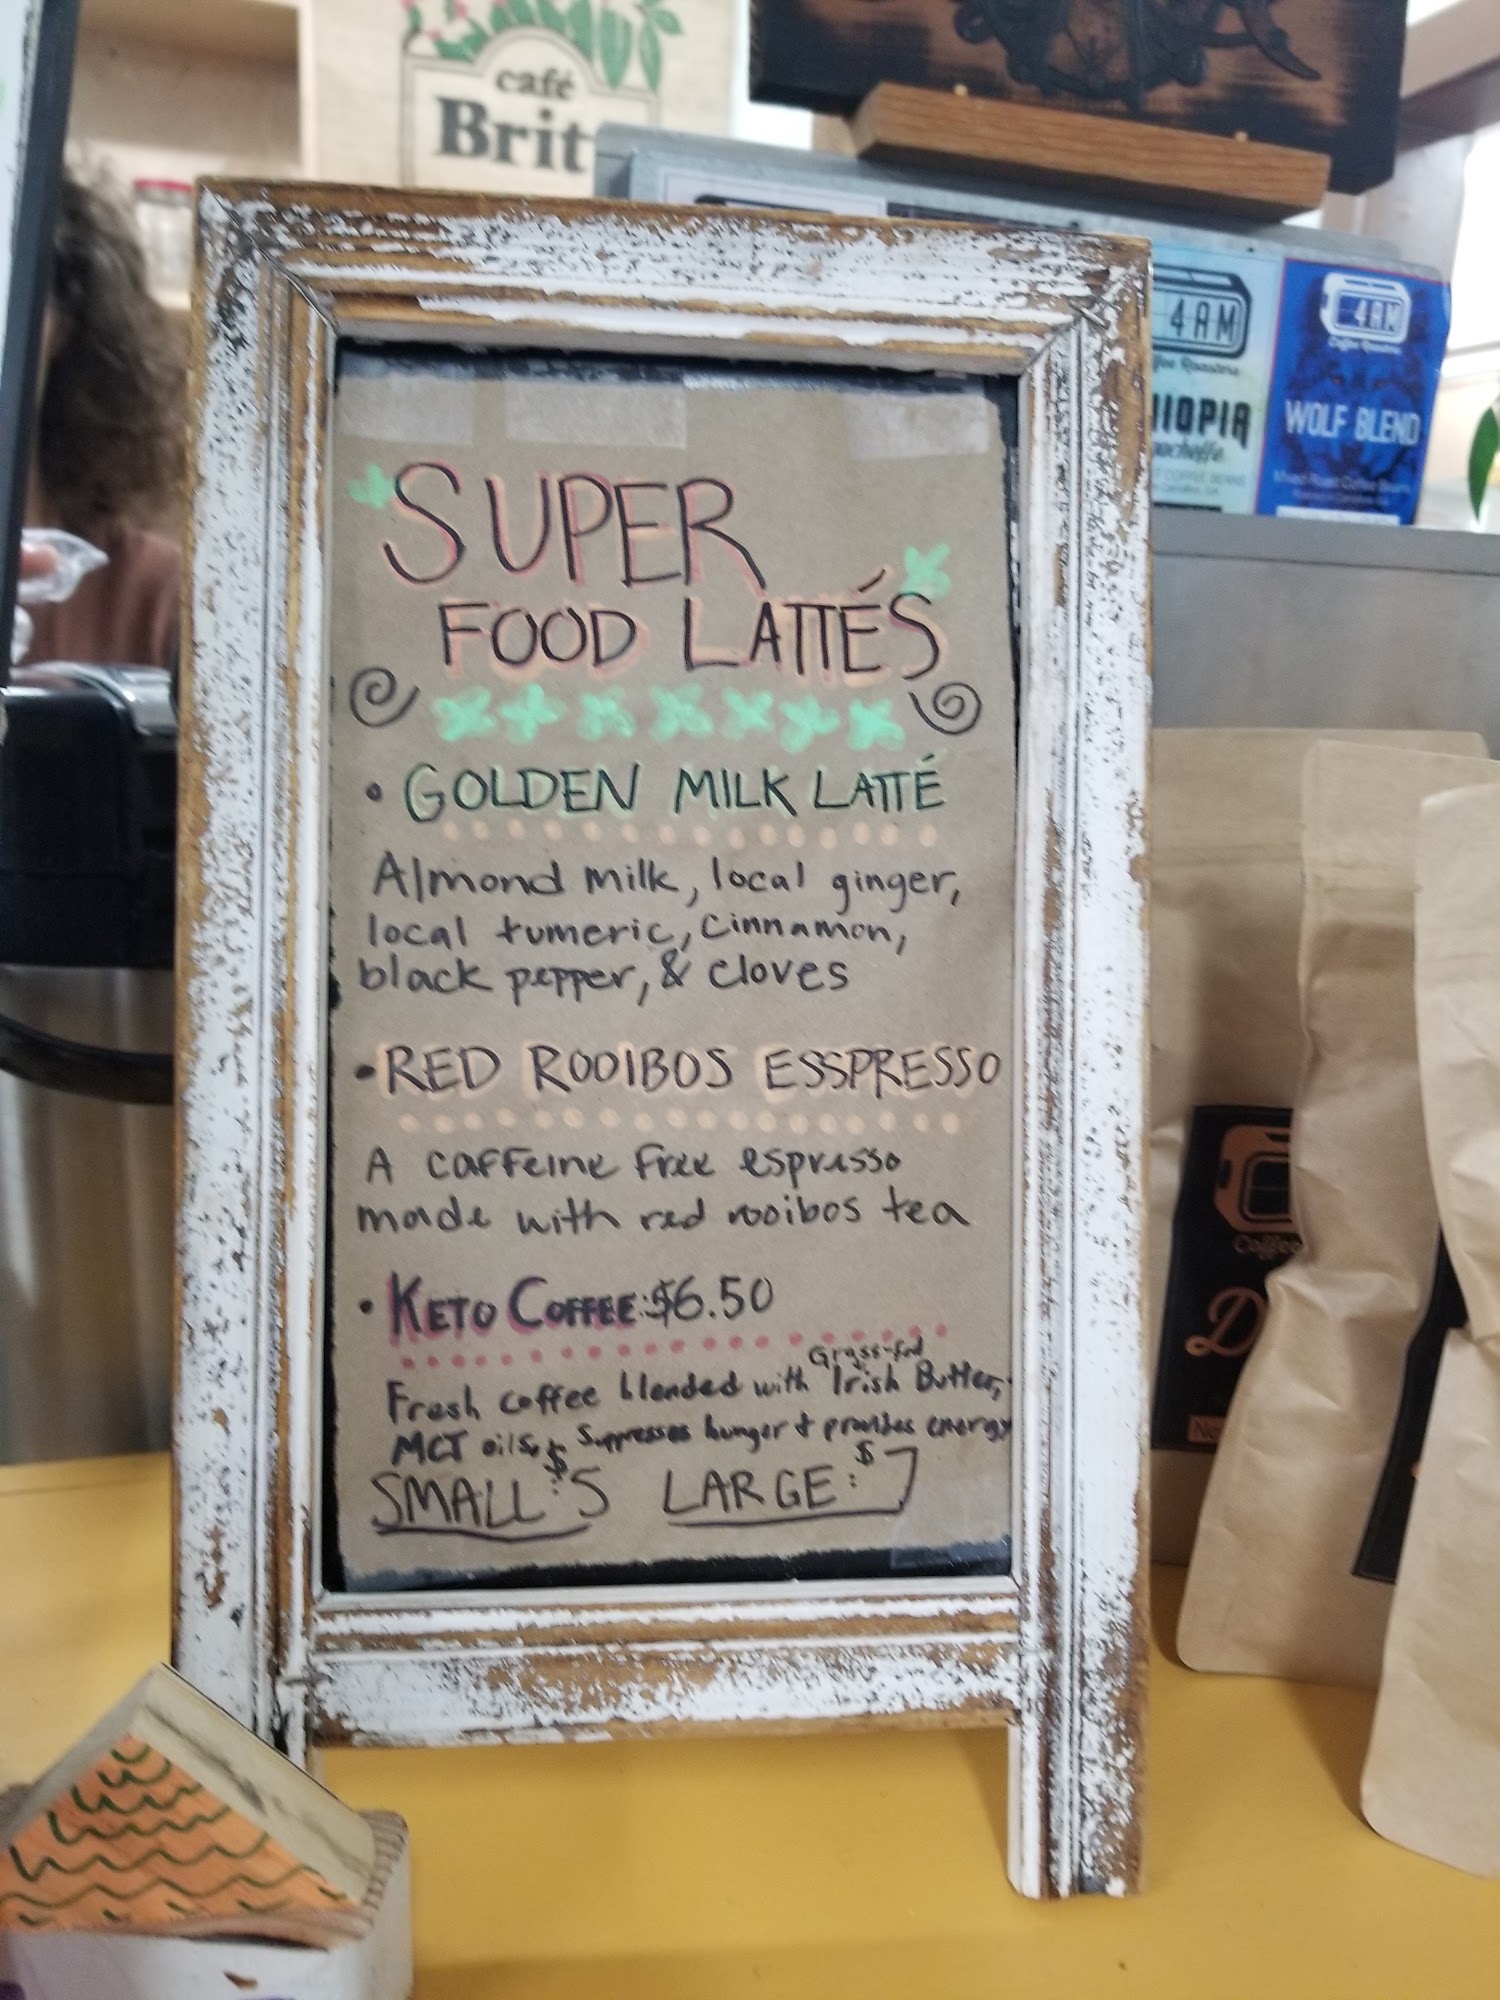 café
Brit
4AM
4AM
Coffee Roasters
WOLF BLEND
SUPER
FOOD LATTÉS
• GOLDEN MILK LATTÉ
Almond milk, local ginger,
local tumeric, cinnamon,
black pepper, & cloves
• RED ROOIBOS ESSPRESSO
A caffeine free espresso
made with red rooibos tea
• KETO COFFEE: $6.50
Fresh coffee blended with Grass-fed Irish Butter,
MCT oils, & Suppresses hunger & provides energy
SMALL: $5 LARGE: $7
Coffee